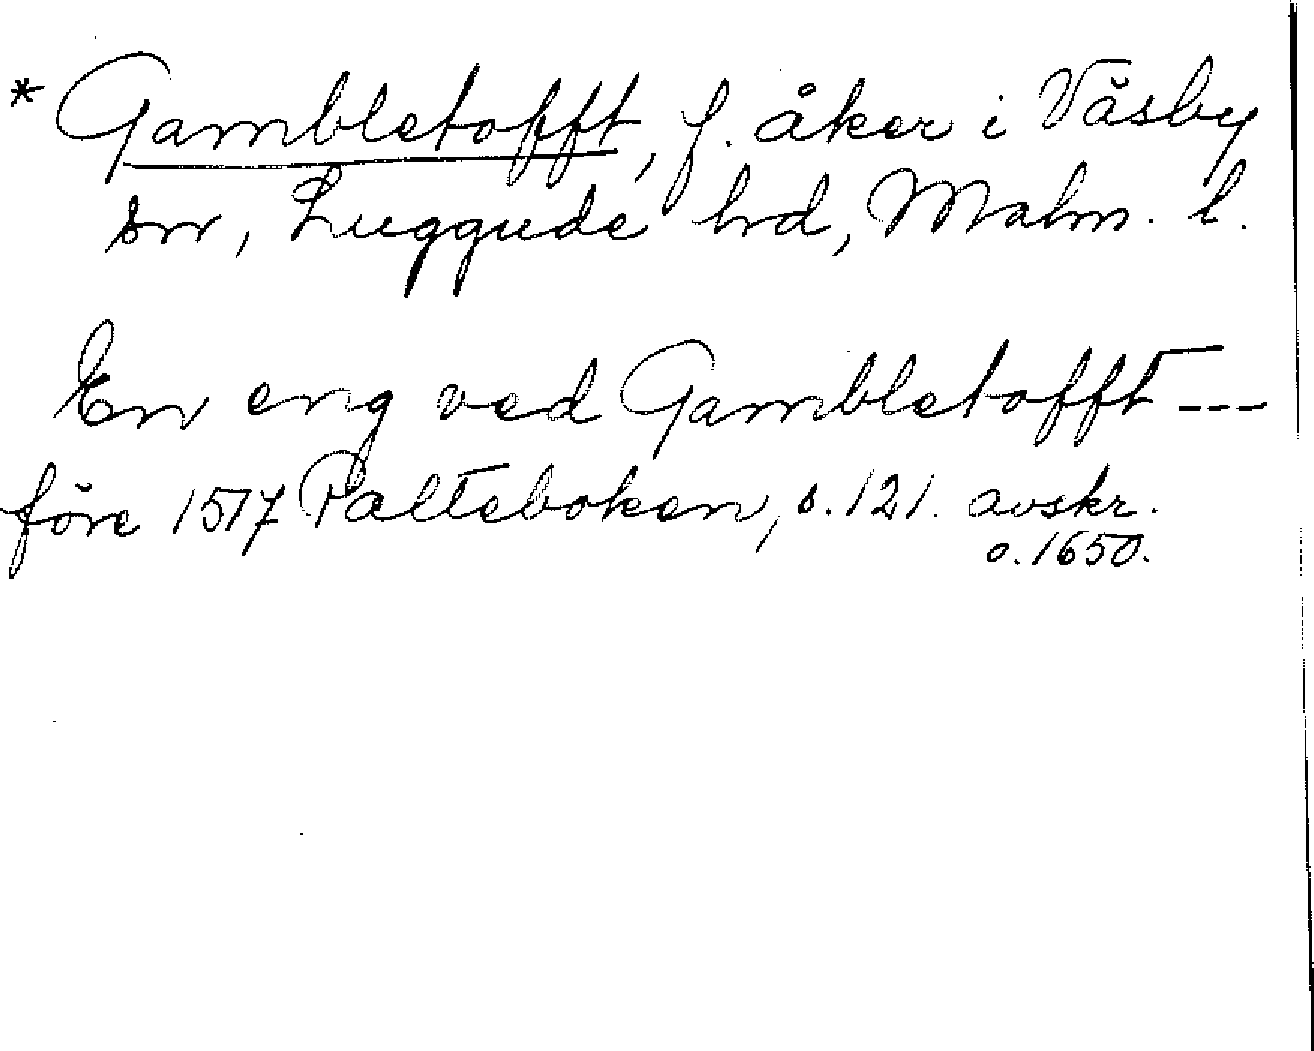 * Gambletofft, f. åker i Väsby
sn, Luggude hd, Malm. l.
En eng ved Gambletofft ---
före 1517 Palteboken, s. 121. avskr.
o. 1650.